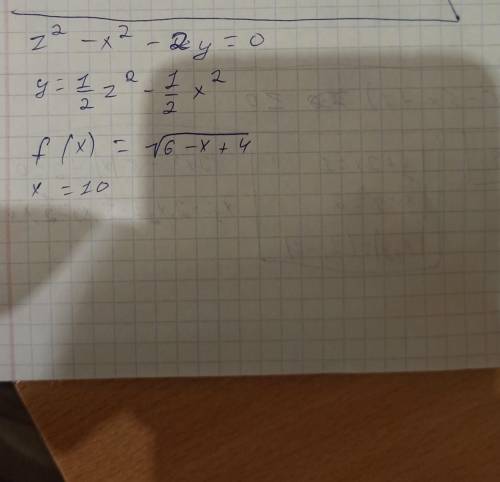 z² - x² - 2y = 0
y = 1/2 z² - 1/2 x²
f(x) = √(6 - x + 4)
x = 10